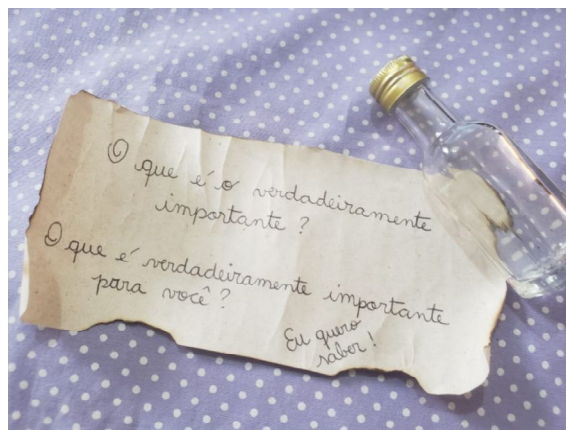 O que é o verdadeiramente
importante ?
O que é verdadeiramente importante
para você ?
Eu quero
saber !